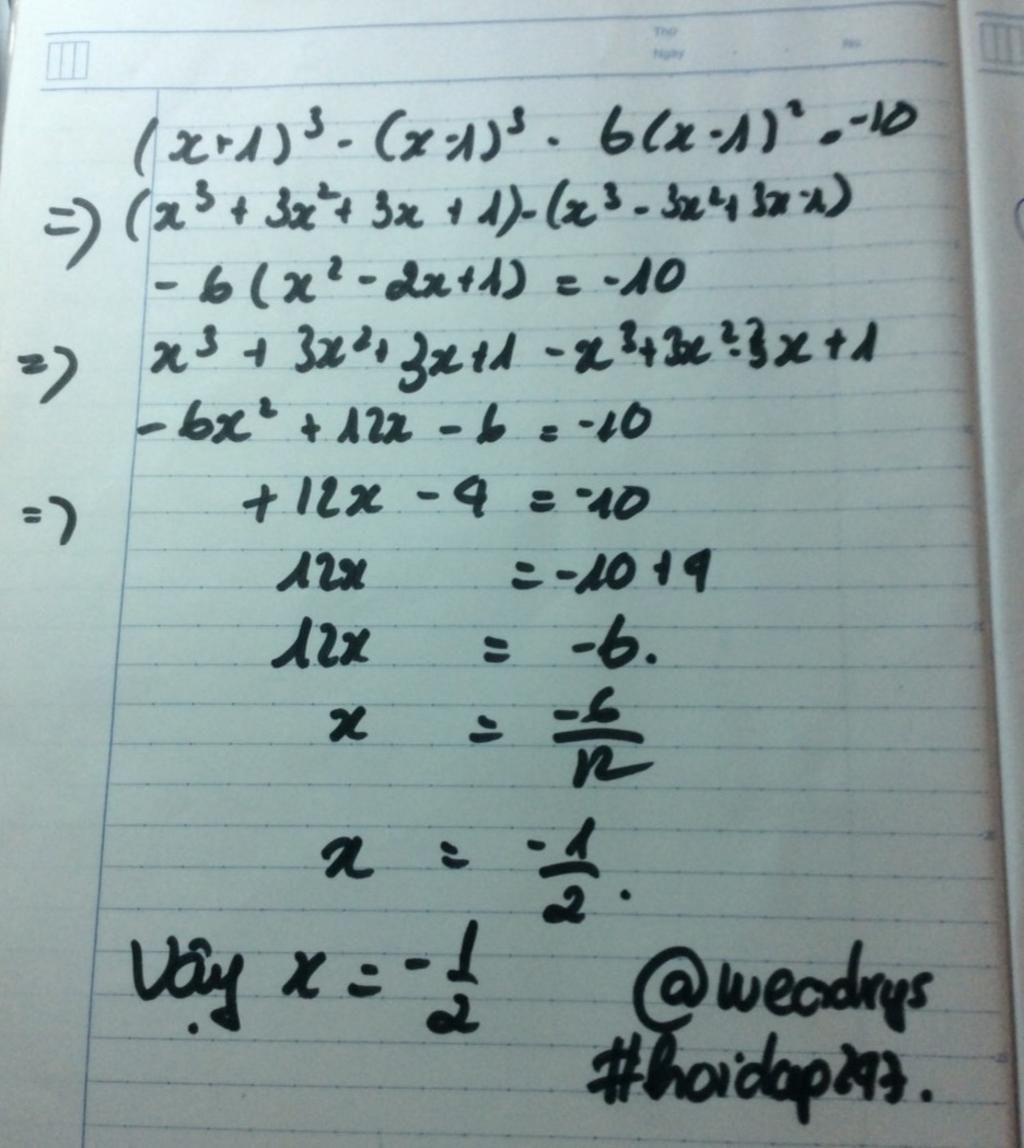 Thứ
Ngày No.
(x+1)³ - (x-1)³ - 6(x-1)² = -10
=> (x³ + 3x² + 3x + 1) - (x³ - 3x² + 3x - 1)
- 6(x² - 2x + 1) = -10
=> x³ + 3x² + 3x + 1 - x³ + 3x² - 3x + 1
- 6x² + 12x - 6 = -10
=> + 12x - 4 = -10
12x = -10 + 4
12x = -6.
x = -6/12
x = -1/2.
Vậy x = -1/2 @weadrys
#hoidap247.